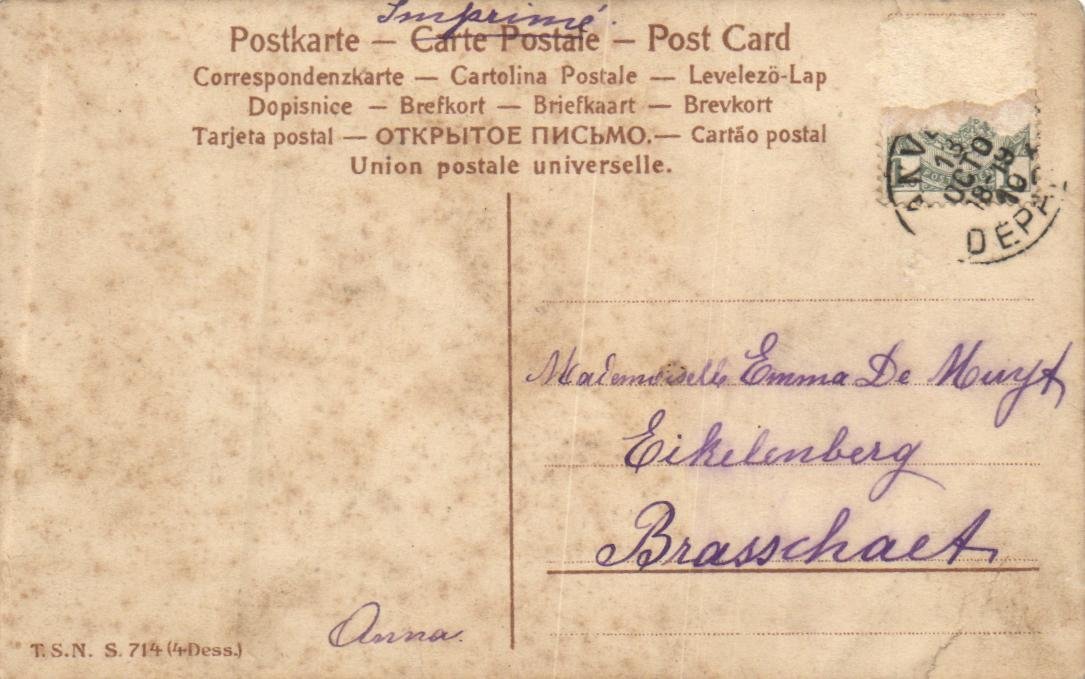 Imprimé.
Postkarte — Carte Postale — Post Card
Correspondenzkarte — Cartolina Postale — Levelezö-Lap
Dopisnice — Brefkort — Briefkaart — Brevkort
Tarjeta postal — ОТКРЫТОЕ ПИСЬМО. — Cartão postal
Union postale universelle.
13
OCTO
18-19
10
DÉPA
Mademoiselle Emma De Muyt
Eikelenberg
Brasschaet
Anna.
T.S.N. S. 714 (4 Dess.)